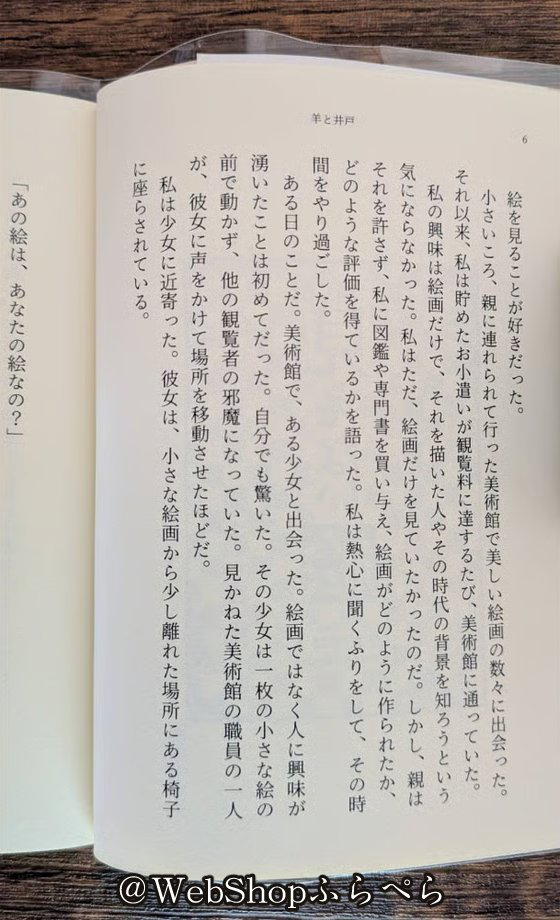 羊と井戸
6
絵を見ることが好きだった。
小さいころ、親に連れられて行った美術館で美しい絵画の数々に出会った。
それ以来、私は貯めたお小遣いが観覧料に達するたび、美術館に通っていた。
私の興味は絵画だけで、それを描いた人やその時代の背景を知ろうという
気にならなかった。私はただ、絵画だけを見ていたかったのだ。しかし、親は
それを許さず、私に図鑑や専門書を買い与え、絵画がどのように作られたか、
どのような評価を得ているかを語った。私は熱心に聞くふりをして、その時
間をやり過ごした。
ある日のことだ。美術館で、ある少女と出会った。絵画ではなく人に興味が
湧いたことは初めてだった。自分でも驚いた。その少女は一枚の小さな絵の
前で動かず、他の観覧者の邪魔になっていた。見かねた美術館の職員の一人
が、彼女に声をかけて場所を移動させたほどだ。
私は少女に近寄った。彼女は、小さな絵画から少し離れた場所にある椅子
に座らされている。
「あの絵は、あなたの絵なの？」
@WebShopふらぺら